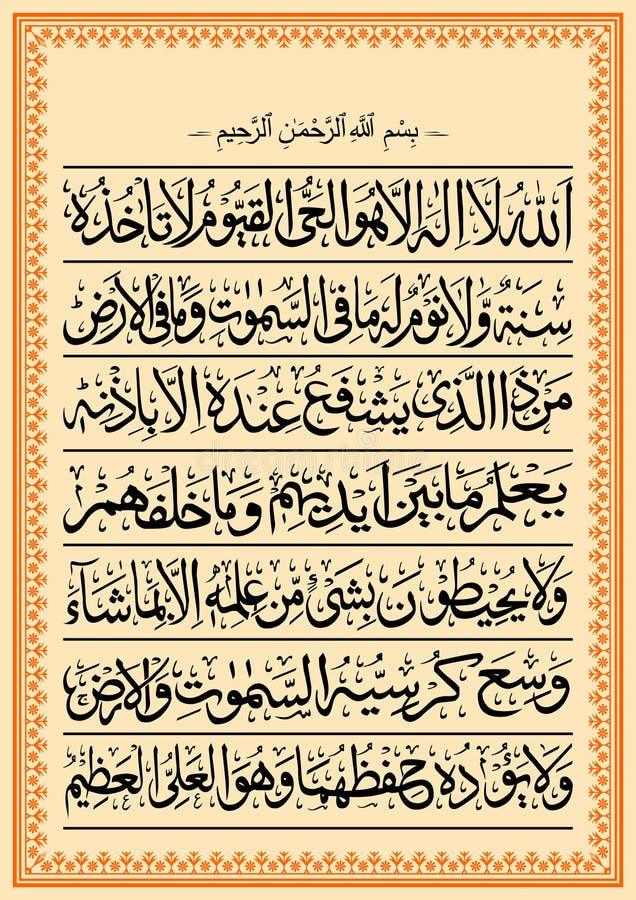 بِسْمِ اللَّهِ الرَّحْمَٰنِ الرَّحِيمِ
اَللّٰهُ لَاۤ اِلٰهَ اِلَّا هُوَ الْحَیُّ الْقَیُّوْمُ لَا تَاْخُذُهٗ
سِنَةٌ وَّلَا نَوْمٌ لَهٗ مَا فِی السَّمٰوٰتِ وَمَا فِی الْاَرْضِؕ
مَنْ ذَا الَّذِیْ یَشْفَعُ عِنْدَهٗۤ اِلَّا بِاِذْنِهٖؕ
یَعْلَمُ مَا بَیْنَ اَیْدِیْهِمْ وَمَا خَلْفَهُمْ
وَلَا یُحِیْطُوْنَ بِشَیْءٍ مِّنْ عِلْمِهٖۤ اِلَّا بِمَا شَآءَ
وَسِعَ كُرْسِیُّهُ السَّمٰوٰتِ وَالْاَرْضَ
وَلَا یَؤُدُهٗ حِفْظُهُمَا وَهُوَ الْعَلِیُّ الْعَظِیْمُ
dreamstime